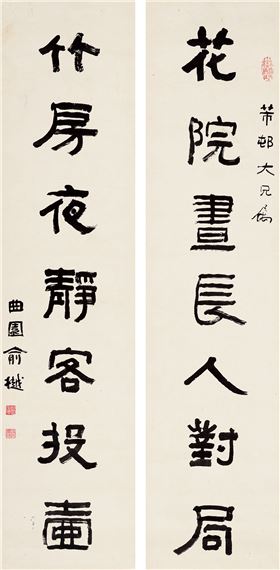 邨大兄屬
花院晝長人對局
竹房夜靜客投壺
曲園俞樾